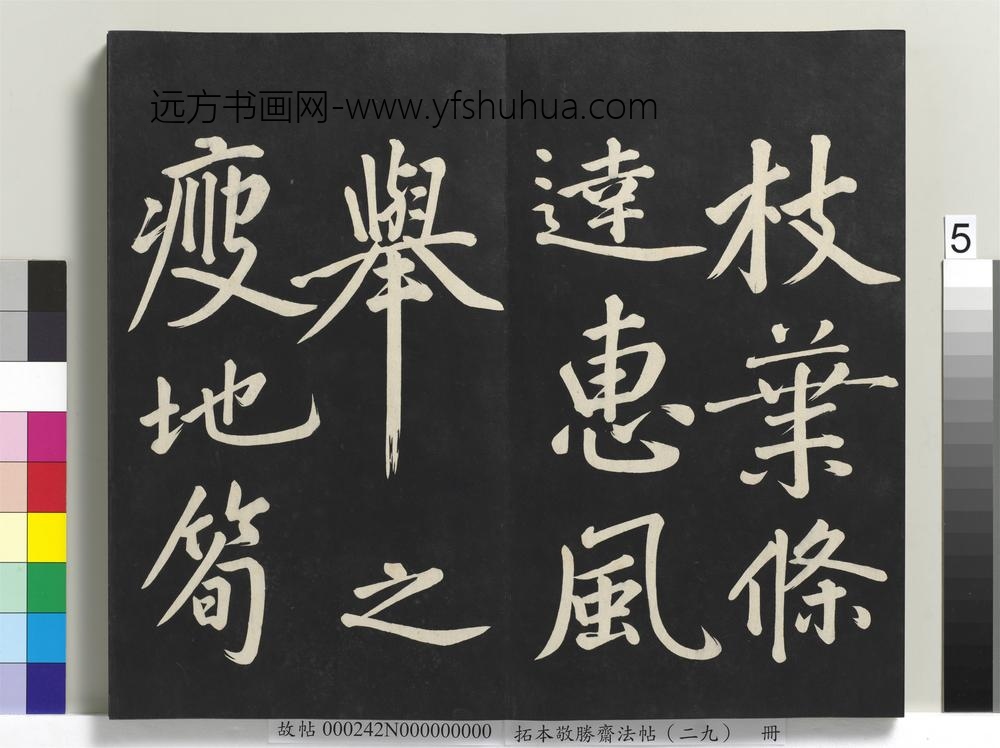 远方书画网-www.yfshuhua.com
枝葉條
達惠風
舉之
瘦地筍
5
故帖 000242N000000000 拓本敬勝齋法帖（二九） 冊